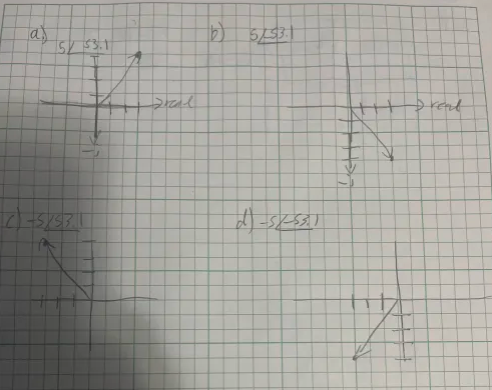 a)
5∠53.1
real
-j
b) 5∠53.1
real
-j
c) -5∠53.1
d) -5∠-53.1